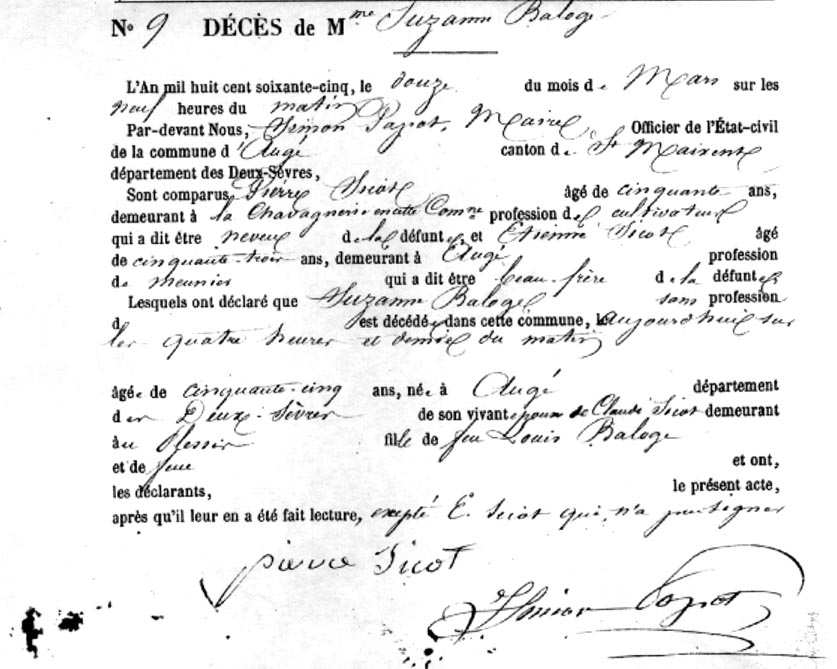 No 9 DÉCÈS de Mme Suzanne Baloge
L'An mil huit cent soixante-cinq, le douze du mois de Mars sur les
neuf heures du matin
Par-devant Nous, Simon Papot, Maire Officier de l'État-civil
de la commune d'Augé canton de St Maixent
département des Deux-Sèvres,
Sont comparus Pierre Sicot âgé de cinquante ans,
demeurant à la Chavagnerie en cette Comne profession de cultivateur
qui a dit être neveu de la défunte et Etienne Sicot âgé
de cinquante-trois ans, demeurant à Augé profession
de meunier qui a dit être beau-frère de la défunte
Lesquels ont déclaré que Suzanne Baloge sans profession
d est décédée dans cette commune, le aujourd'hui sur
les quatre heures et demie du matin
âgée de cinquante-cinq ans, née à Augé département
des Deux-Sèvres de son vivant épouse de Claude Sicot demeurant
au Plessis fille de feu Louis Baloge
et de feue et ont,
les déclarants, le présent acte,
après qu'il leur en a été fait lecture, excepté E. Sicot qui n'a pu signer
pierre Sicot
Simon Papot